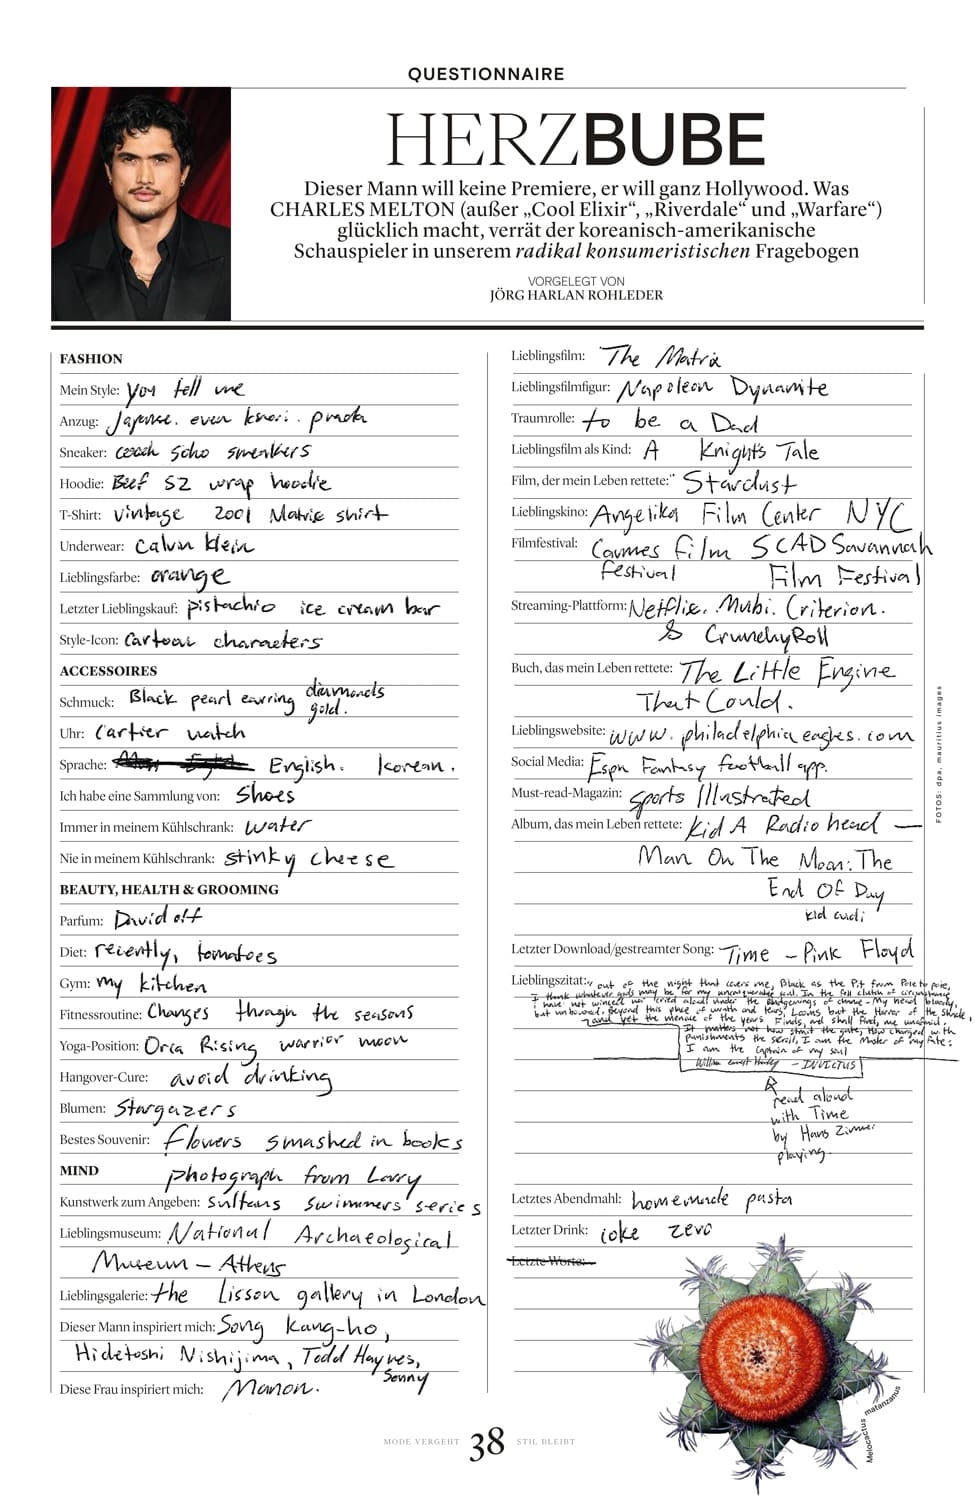 QUESTIONNAIRE
HERZBUBE
Dieser Mann will keine Premiere, er will ganz Hollywood. Was
CHARLES MELTON (außer „Cool Elixir“, „Riverdale“ und „Warfare“)
glücklich macht, verrät der koreanisch-amerikanische
Schauspieler in unserem radikal konsumeristischen Fragebogen
VORGELEGT VON
JÖRG HARLAN ROHLEDER
FASHION
Mein Style: you tell me
Anzug: even prada
Sneaker: coach soho sneakers
Hoodie: Beef S2 wrap hoodie
T-Shirt: vintage 2001 Matrix shirt
Underwear: Calvin Klein
Lieblingsfarbe: orange
Letzter Lieblingskauf: pistachio ice cream bar
Style-Icon: Cartoon characters
ACCESSOIRES
Schmuck: Black pearl earring diamonds
gold.
Uhr: Cartier watch
Sprache: English. Korean.
Ich habe eine Sammlung von: Shoes
Immer in meinem Kühlschrank: water
Nie in meinem Kühlschrank: stinky cheese
BEAUTY, HEALTH & GROOMING
Parfum: Davidoff
Diet: recently, tomatoes
Gym: my kitchen
Fitnessroutine: Changes through the seasons
Yoga-Position: Rising warrior moon
Hangover-Cure: avoid drinking
Blumen: Stargazers
Bestes Souvenir: flowers smashed in books
MIND photograph from Larry
Kunstwerk zum Angeben: sultans swimmers series
Lieblingsmuseum: National Archaeological
Museum – Athens
Lieblingsgalerie: the Lisson gallery in London
Dieser Mann inspiriert mich: Song Kang-ho,
Hidetoshi Nishijima, Todd Haynes,
Sonny
Diese Frau inspiriert mich: Manon.
Lieblingsfilm: The Matrix
Lieblingsfilmfigur: Napoleon Dynamite
Traumrolle: to be a Dad
Lieblingsfilm als Kind: A Knight's Tale
Film, der mein Leben rettete: Stardust
Lieblingskino: Angelika Film Center NYC
Filmfestival: Cannes Film SCAD Savannah
festival Film Festival
Streaming-Plattform: Netflix. Mubi. Criterion.
& CrunchyRoll
Buch, das mein Leben rettete: The Little Engine
That Could.
Lieblingswebsite: www.philadelphiaeagles.com
Social Media: Espn Fantasy football app.
Must-read-Magazin: sports Illustrated
Album, das mein Leben rettete: Kid A Radiohead —
Man On The Moon: The
End Of Day
kid cudi
Letzter Download/gestreamter Song: Time – Pink Floyd
Lieblingszitat: out of the night that covers me, Black as the Pit from Pole to pole,
I thank whatever gods may be for my unconquerable soul. In the fell clutch of circumstance
I have not winced nor cried aloud under the bludgeonings of chance – My head bloody,
but unbowed. Beyond this place of wrath and tears, Looms, but the Horror of the Shade,
and yet the menace of the years Finds, and shall find, me unafraid.
It matters not how strait the gate, How charged with
punishments the scroll, I am the Master of my fate:
I am the captain of my soul
– INVICTUS
read aloud
with Time
by Hans Zimmer
playing.
Letztes Abendmahl: homemade pasta
Letzter Drink: coke zero
Letzte Worte:
FOTOS: dpa, mauritius images
Melocactus matanzanus
MODE VERGEHT 38 STIL BLEIBT